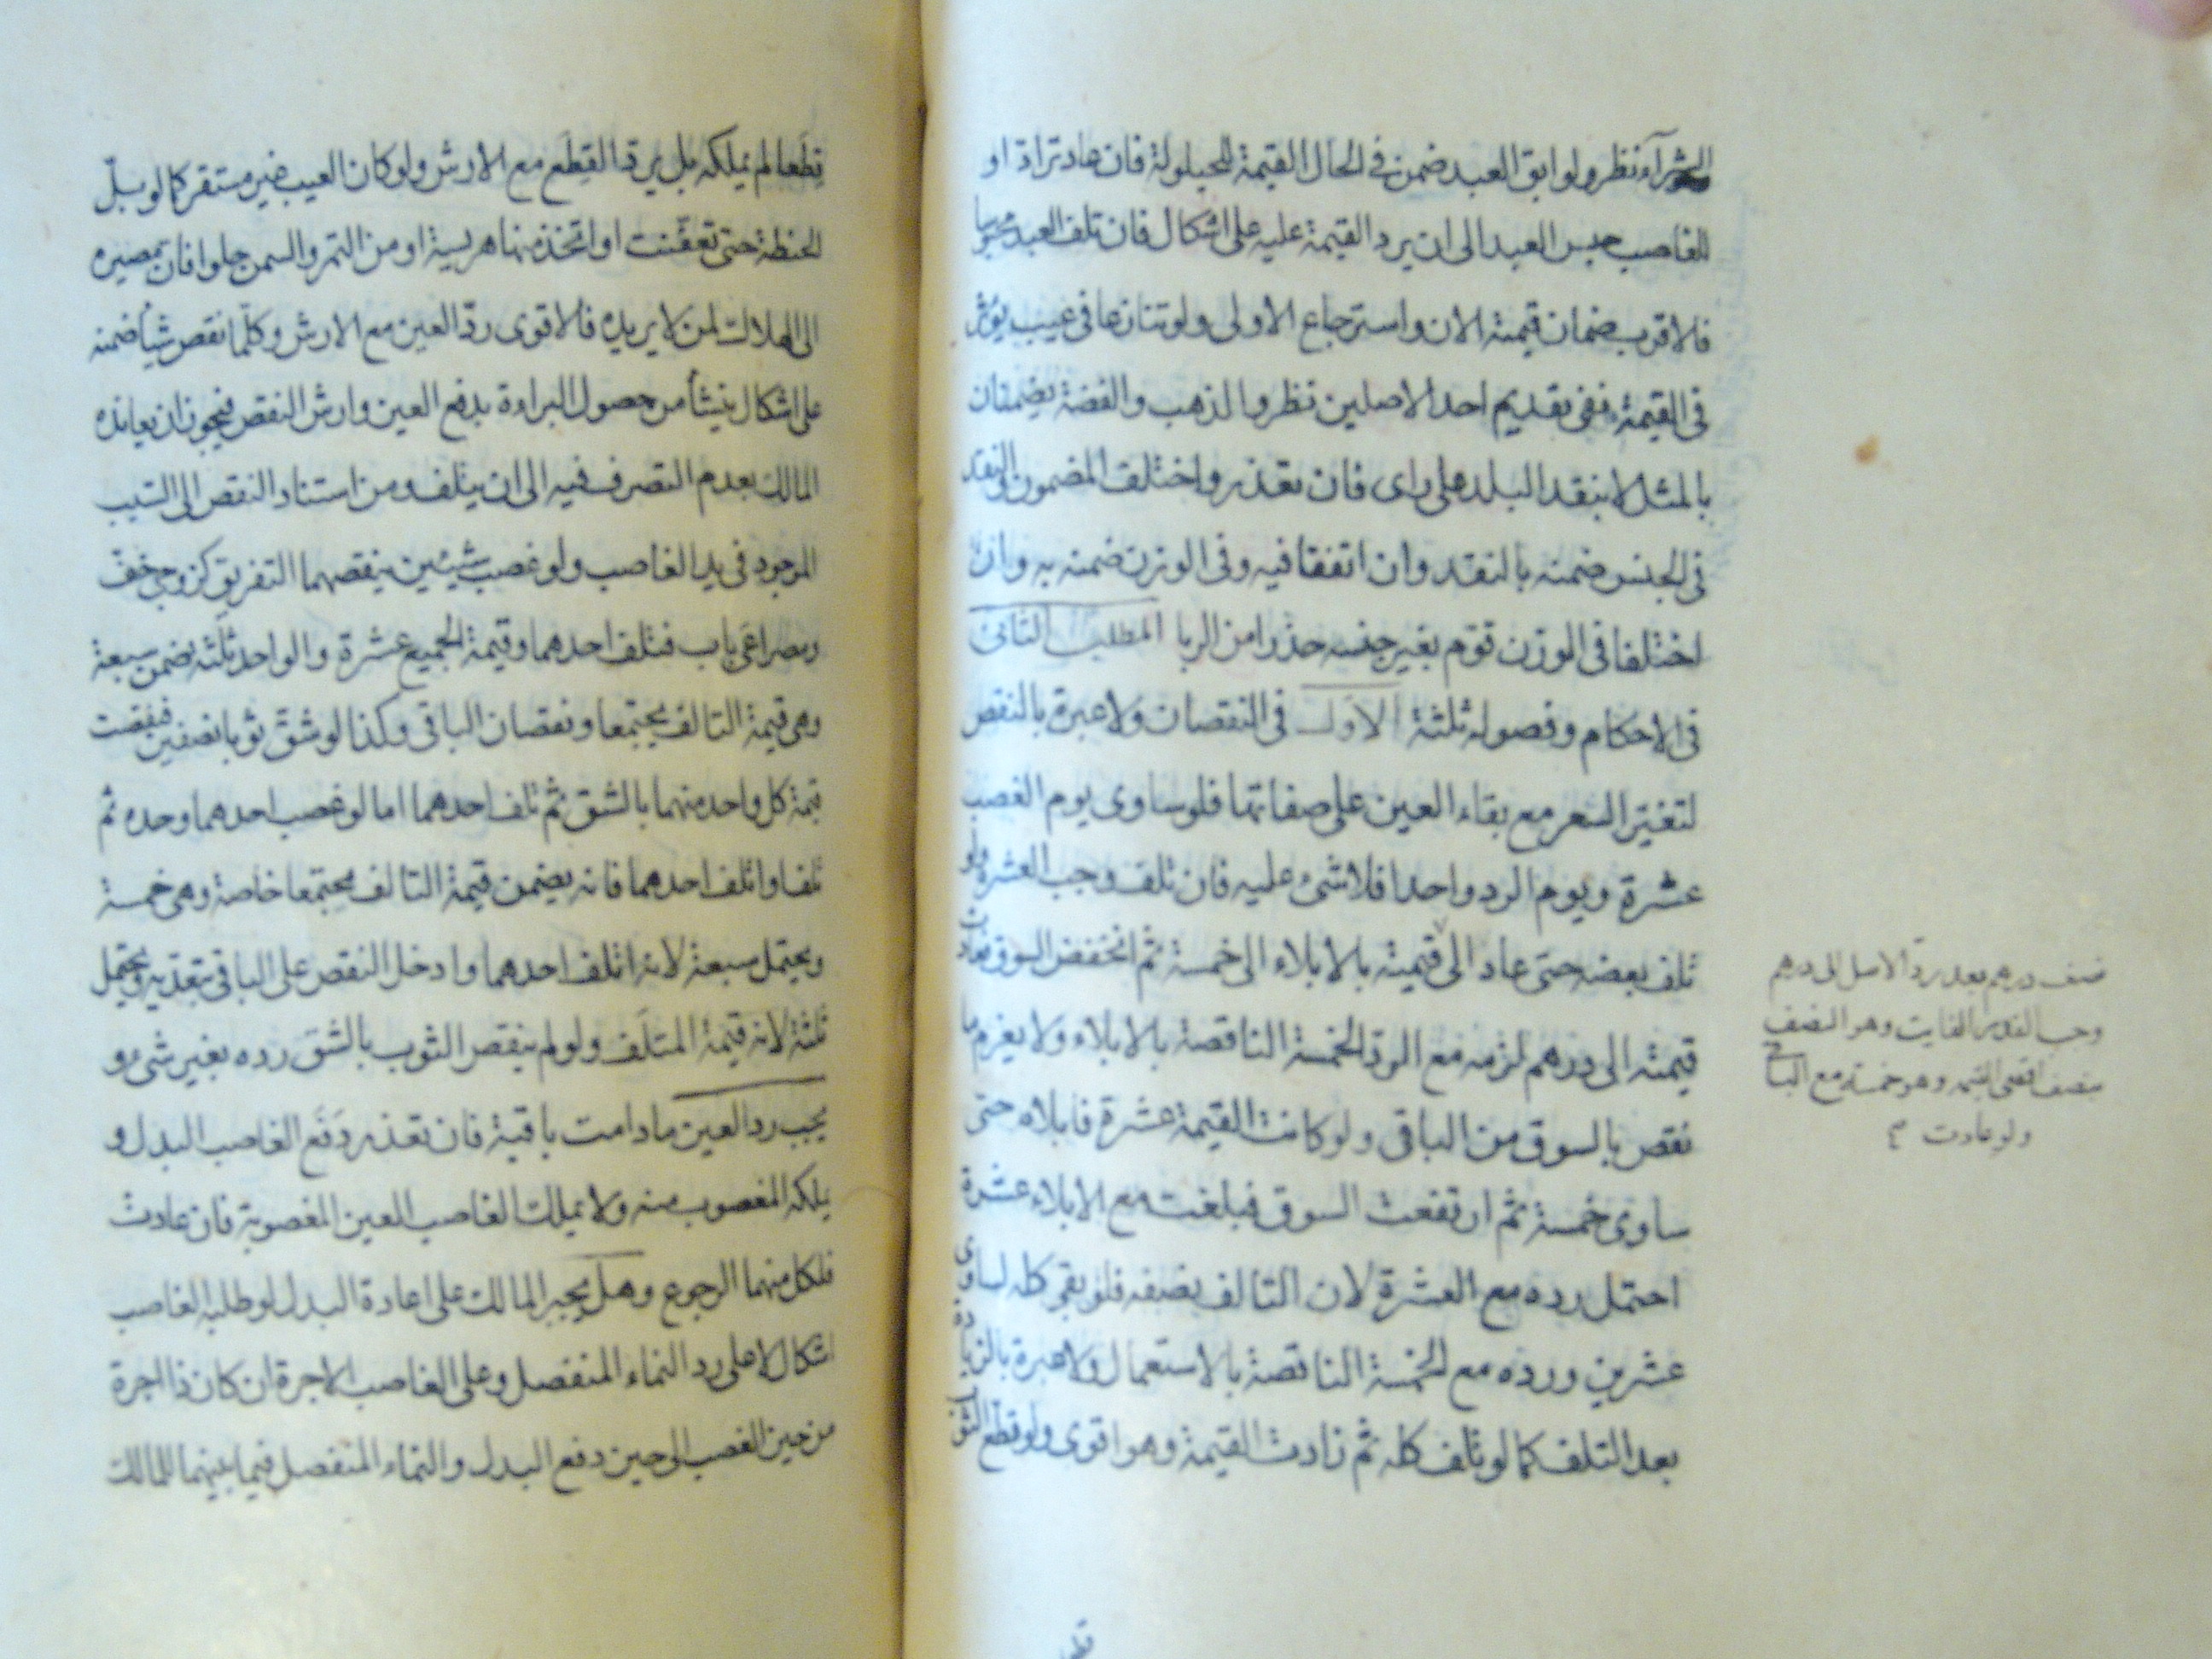 الشراء نظر ولو ابق العبد ضمن في الحال القيمة للحيلولة فان عاد ترادا و
للغاصب حبس العبد الى ان يرد القيمة عليه على اشكال فان تلف العبد محبوسا
فالاقرب ضمان قيمته الان واسترجاع الاولى ولو تنازعا في عيب يؤثر
في القيمة ففي تقديم احد الاصلين نظر والذهب والفضة يضمنان
بالمثل لا بنقد البلد على راى فان تعذر واختلف المضمون والنقد
في الجنس ضمنه بالنقد وان اتفقا فيه وفي الوزن ضمنه به وان
اختلفا في الوزن قوم بغير جنسه حذرا من الربا المطلب الثاني
في الاحكام وفصوله ثلثة الاول في النقصان ولا عبرة بالنقص
لتغير السعر مع بقاء العين على صفاتها فلو ساوى يوم الغصب
عشرة ويوم الرد واحدا فلا شئ عليه فان تلف وجب العشرة ولو
تلف بعضه حتى عاد الى قيمته بالابلاء الى خمسة ثم انخفض السوق فعادت
قيمته الى درهم لزمه مع الرد الخمسة الناقصة بالابلاء ولا يغرم ما
نقص بالسوق من الباقي ولو كانت القيمة عشرة فابلاه حتى
ساوى خمسة ثم ارتفعت السوق فبلغت مع الابلاء عشرة
احتمل رده مع العشرة لان التالف نصفه فلو بقى كله لساوى
عشرين ورده مع الخمسة الناقصة بالاستعمال ولا عبرة بالزيادة
بعد التلف كما لو تلف كله ثم زادت القيمة وهو اقوى ولو قطع الثوب
نصف درهم بعد رد الاصل الى درهم
وجب القدر الفايت وهو النصف
بنصف اقصى القيمة وهو خمسة مع
ولو عادت
قطعا لم يملكه بل يرد القطع مع الارش ولو كان العيب غير مستقر كما لو بل
الحنطة حتى تعفنت او اتخذ منها هريسة او من التمر والسمن حلوا فان مصيره
الى الهلاك لمن لا يريده فالاقوى رد العين مع الارش وكلما نقص شيأ ضمنه
على اشكال ينشأ من حصول البراءة بدفع العين وارش النقص فيجوز ان يعانده
المالك بعدم التصرف فيه الى ان يتلف ومن استناد النقص الى السبب
الموجود في يد الغاصب ولو غصب شيئين ينقصهما التفريق كزوجى خف
ومصراعى باب فتلف احدهما وقيمة الجميع عشرة والواحد ثلثة ضمن سبعة
وهى قيمة التالف مجتمعا ونقصان الباقي وكذا لو شق ثوبا نصفين فنقصت
قيمة كل واحد منهما بالشق ثم تلف احدهما اما لو غصب احدهما وحده ثم
تلف او اتلف احدهما فانه يضمن قيمة التالف مجتمعا خاصة وهى خمسة
ويحتمل سبعة لانه اتلف احدهما وادخل النقص على الباقي بتعديه ويحتمل
ثلثة لانه قيمة المتلف ولو لم ينقص الثوب بالشق رده بغير شئ و
يجب رد العين ما دامت باقية فان تعذر دفع الغاصب البدل و
يملكه المغصوب منه ولا يملك الغاصب العين المغصوبة فان عادت
فلكل منهما الرجوع وهل يجبر المالك على اعادة البدل لو طلبه الغاصب
اشكال لا على رد النماء المنفصل وعلى الغاصب الاجرة ان كان ذا اجرة
من حين الغصب الى حين دفع البدل والنماء المنفصل فيما بينهما للمالك